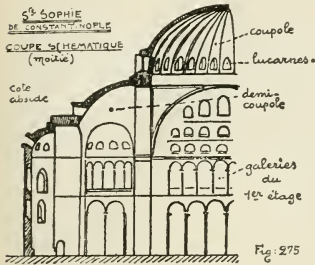 Ste SOPHIE
DE CONSTANTINOPLE
COUPE SCHEMATIQUE
(moitié)
coté
abside
coupole
lucarnes
demi-
coupole
galeries
du
1er étage
Fig: 275